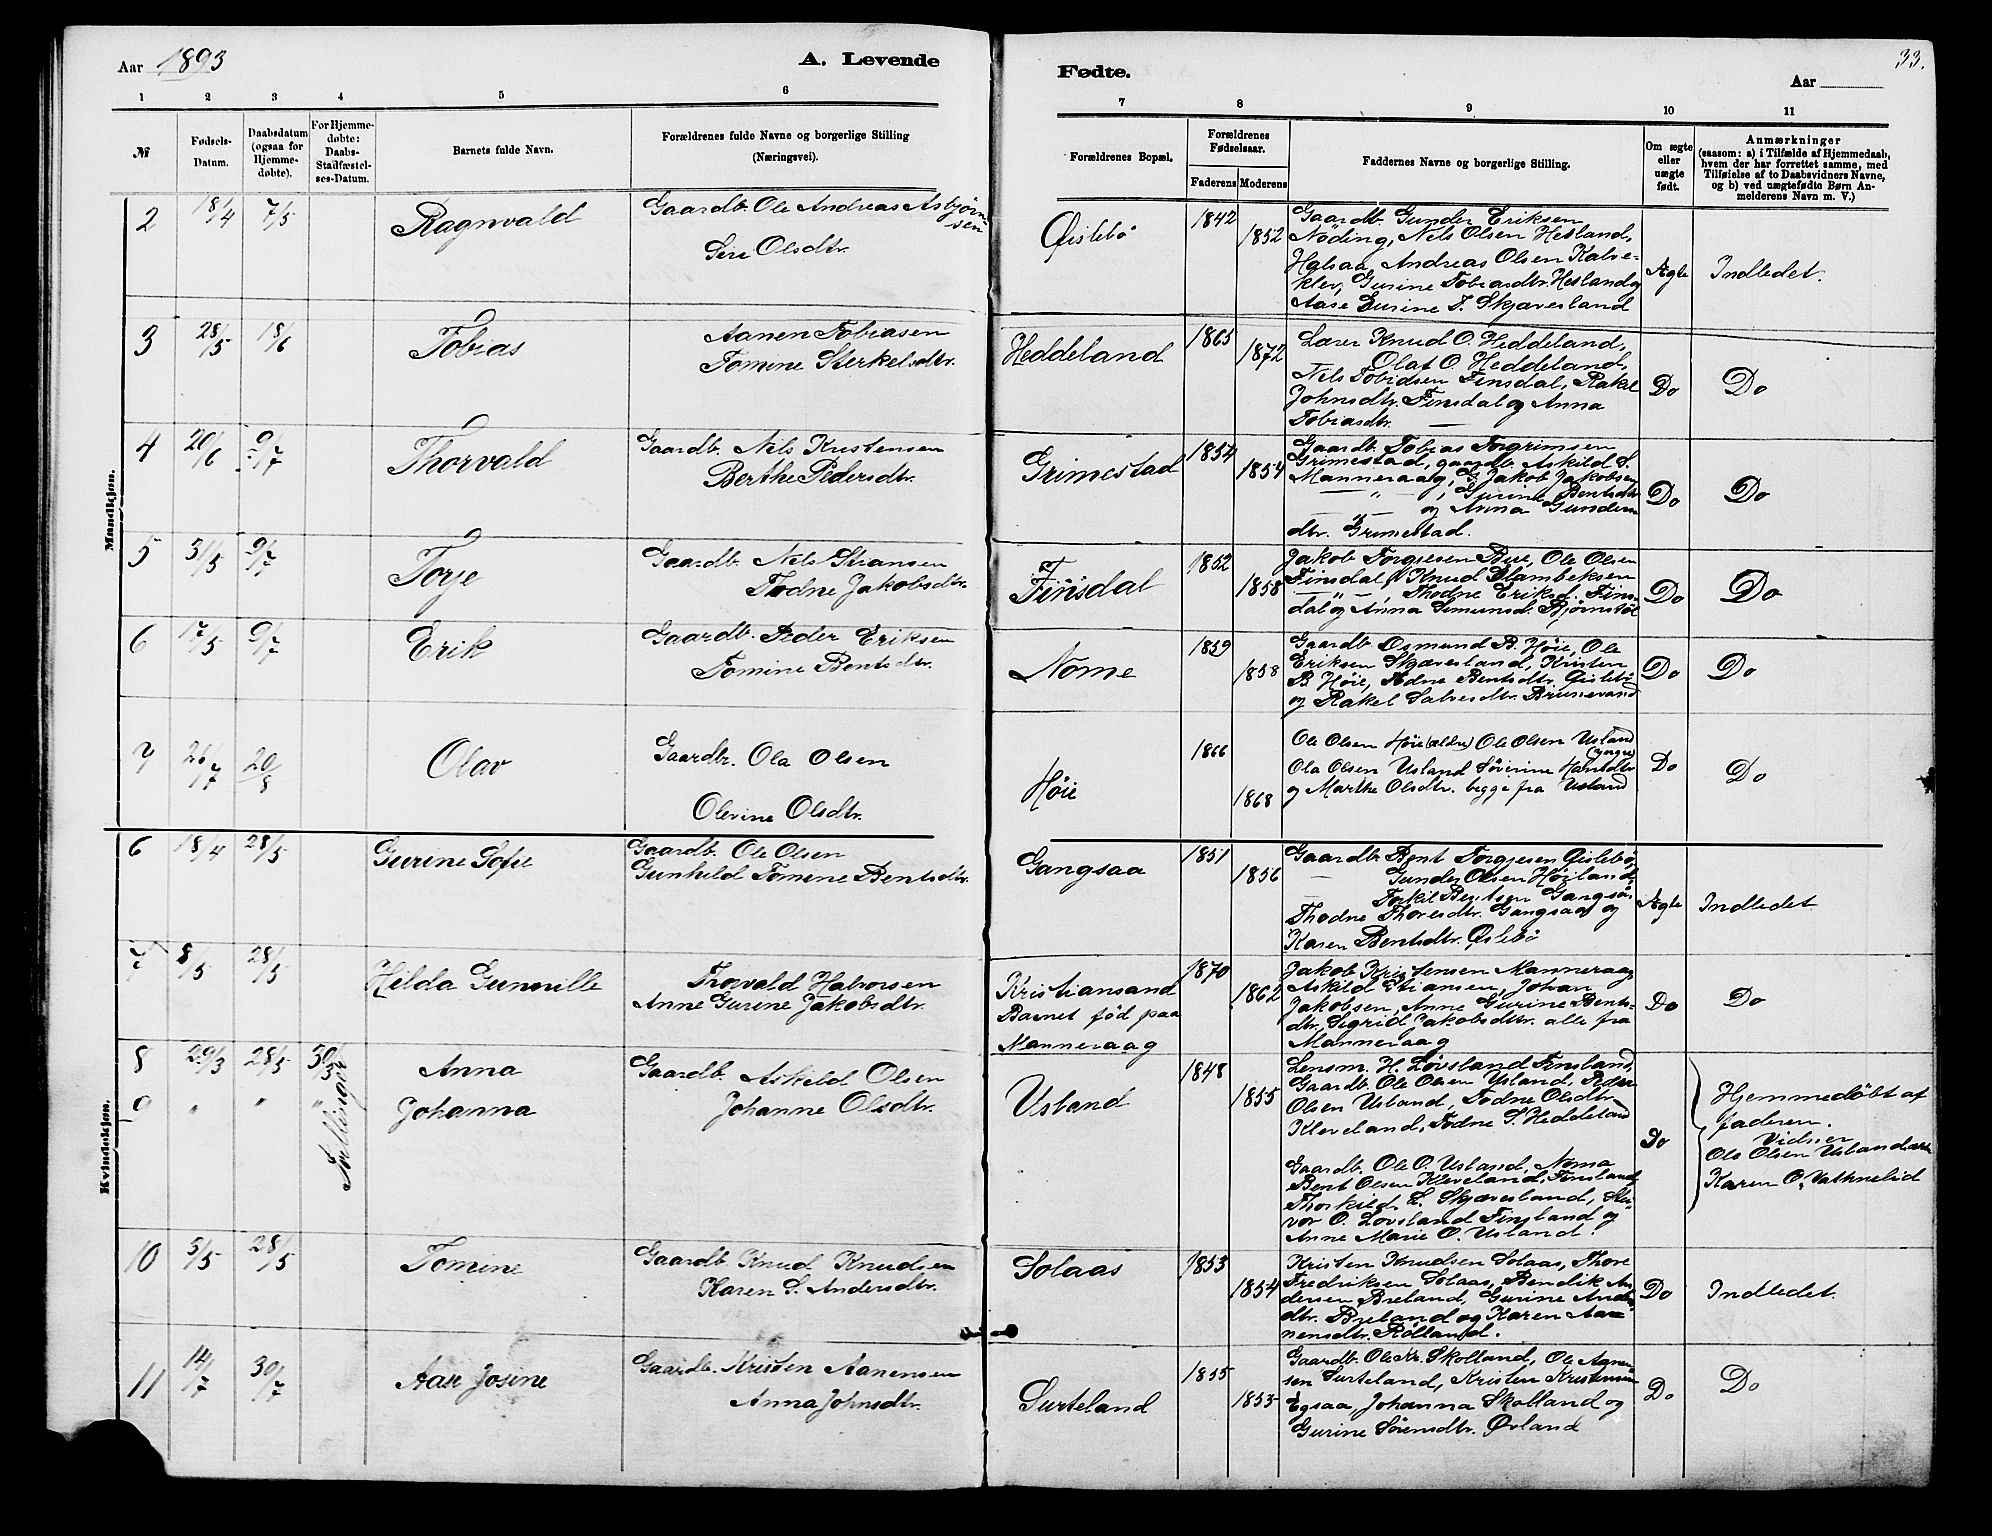 Aar 1893
A. Levende
Fødte.
Aar
33.
1 2 3 4 5 6 7 8 9 10 11
№
Fødsels-Datum.
Daabsdatum (ogsaa for Hjemmedøbte).
For Hjemmedøbte: Daabs-Stadfæstelses-Datum.
Barnets fulde Navn.
Forældrenes fulde Navne og borgerlige Stilling
(Næringsvei).
Forældrenes Bopæl.
Forældrenes Fødselsaar.
Faderens Moderens
Faddernes Navne og borgerlige Stilling.
Om ægte eller uægte født.
Anmærkninger
(saasom: a) i Tilfælde af Hjemmedaab, hvem der har forrettet samme, med Tilføielse af to Daabsvidners Navne, og b) ved uægtefødte Børn Anmelderens Navn m. V.)
Mandkjøn.
2 18/4 7/5 Ragnvald
Gaardb. Ole Andreas Asbjørnsen
Siri Olsdtr.
Øislebö 1842 1852
Gaardb. Gunder Eriksen
Nöding, Nils Olsen Hesland,
Halsaa, Andreas Olsen Kalve-
klev, Gurine Tobiasdtr. Hesland og
Aase Gurine T. Skjæresland
Ægte Indledet.
3 28/5 18/6 Tobias
Aanen Tobiasen
Tomine Sterkelsdtr.
Heddeland 1865 1872
Lærer Knud O. Heddeland,
— Olaf O. Heddeland,
Nils Tobiasen Finsdal, Rakel
Johnsdtr. Finsdal og Anna
Tobiasdtr. —
Do Do
4 20/6 9/7 Thorvald
Gaardb. Nils Kristensen
Berthe Pedersdtr.
Grimestad 1854 1854
Gaardb. Tobias Torgrimsen
Grimestad, gaardb. Askild S.
Manneraag, G. Jakob Jakobsen
— „ — , Gurine Bentsdtr
og Anna Gunders
dtr. Grimestad.
Do Do
5 31/5 9/7 Torje
Gaardb. Nils Stiansen
Todne Jakobsdtr.
Finsdal 1852 1858
Jakob Torgiesen Bue, Ole Olsen
Finsdal, Knud Lambeksen
— „ —, Thodne Eriksd. Fins-
dal og Anna Simunsd. Bjørnstøl
Do Do
6 17/5 9/7 Erik
Gaardb. Peder Eriksen
Tomine Bentsdtr.
Nome 1859 1858
Gaardb Osmund B. Höie, Ole
Eriksen Skjæresland, Kristen
B. Höie, Adne Bentsdtr. Øislebö
og Rakel Salvesdtr. Brunevand
Do Do
7 26/7 20/8 Olav
Gaardbr. Ola Olsen
Olevine Olsdtr.
Höie 1866 1868
Ole Olsen Höie (ældre) Ole Olsen Usland
(yngre)
Ola Olsen Usland Sörine Hansdtr
og Marthe Olsdtr. begge fra Usland
Do Do
Kvindekjøn.
6 18/4 28/5 Gurine Sofie
Gaardb. Ole Olsen
Gunhild Tomine Bentsdtr.
Gangsaa 1851 1856
Gaardb. Bent Torgjesen Øislebö,
— Gunder Olsen Höiland,
Torkil Bentsen Gangsaa,
Thodne Thoresdtr. Gangsaa og
Karen Bentsdtr. Øislebö
Ægte Indledet
7 8/5 28/5 Hilda Gunnille
Thorvald Halvorsen
Anne Gurine Jakobsdtr.
Kristiansand
Barnet fød paa
Manneraag
1870 1862
Jakob Kristensen Manneraag
Askild Stiansen, Johan
Jakobsen, Anne Gurine Bents-
dtr, Sigrid Jakobsdtr. alle fra
Manneraag
Do Do
8 29/3 28/5 Anna
9 „ „ „ Johanna
Gaardb. Askild Olsen
Johanne Olsdtr.
Usland 1848 1855
Lensm. H. Lövsland Finsland,
Gaardb. Ole Olsen Usland, Peder
Olsen Usland, Todne Olsdtr
Kleveland, Todne S. Heddeland
Gaardb. Ole O. Usland, Noma
Bent Olsen Kleveland, Finsland,
Thorkild L. Skjæresland,
vor O. Lovsland Finsland og
Anne Marie O. Usland.
Do
Hjemmedöbt af
faderen.
Vidner
Ole Olsen Usland
Karen O. Vathnelid
10 5/5 28/5 Tomine
Gaardb. Knud Knudsen
Karen S. Andersdtr.
Solaas 1853 1854
Kristen Knudsen Solaas, Thore
Fredriksen Solaas, Bendik An-
dersen Breland, Gurine Anders
dtr. Breland og Karen Aa-
nensdtr. Rölland.
Do Indledet.
11 14/7 30/7 Aase Josine
Gaardb. Kristen Aanensen
Anna Johnsdtr.
Surteland 1855 1853
Gaardb. Ole Kr. Skolland, Ole Aanen-
sen Surteland, Kristen Kristensen
Egsaa, Johanna Skolland og
Gurine Sörensdtr. Øvland
Do Do